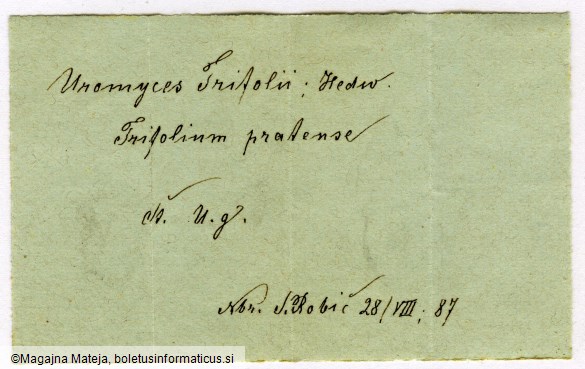 Uromyces Trifolii; Hedw.
Trifolium pratense
U. g.
Nbr. S. Robič 28/VIII; 87
©Magajna Mateja, boletusinformaticus.si